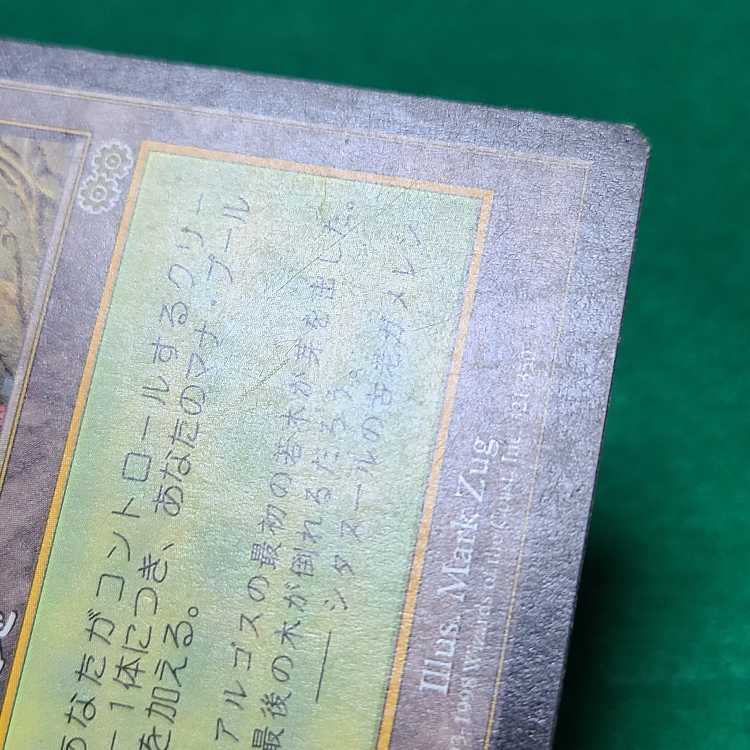 あなたがコントロールするクリー
ー1体につき、あなたのマナ・プール
を加える。
アルゴスの最初の若木が芽を出した。
最後の木が倒れるだろう。
――シタヌールの古老ガメレン
Illus. Mark Zug
1998 Wizards of the Coast, Inc.